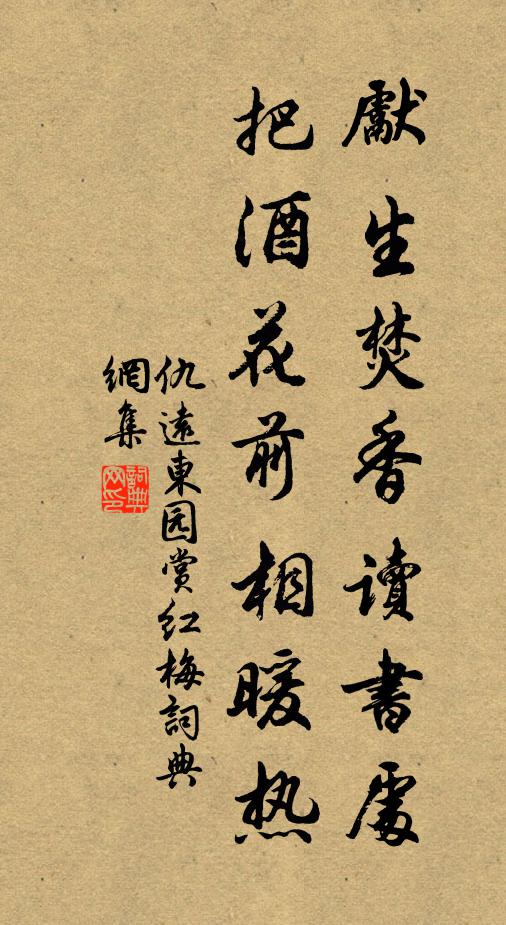 獻生焚香讀書處
把酒花前相暖热
仇遠東园赏红梅詞典
網集
詞典網印